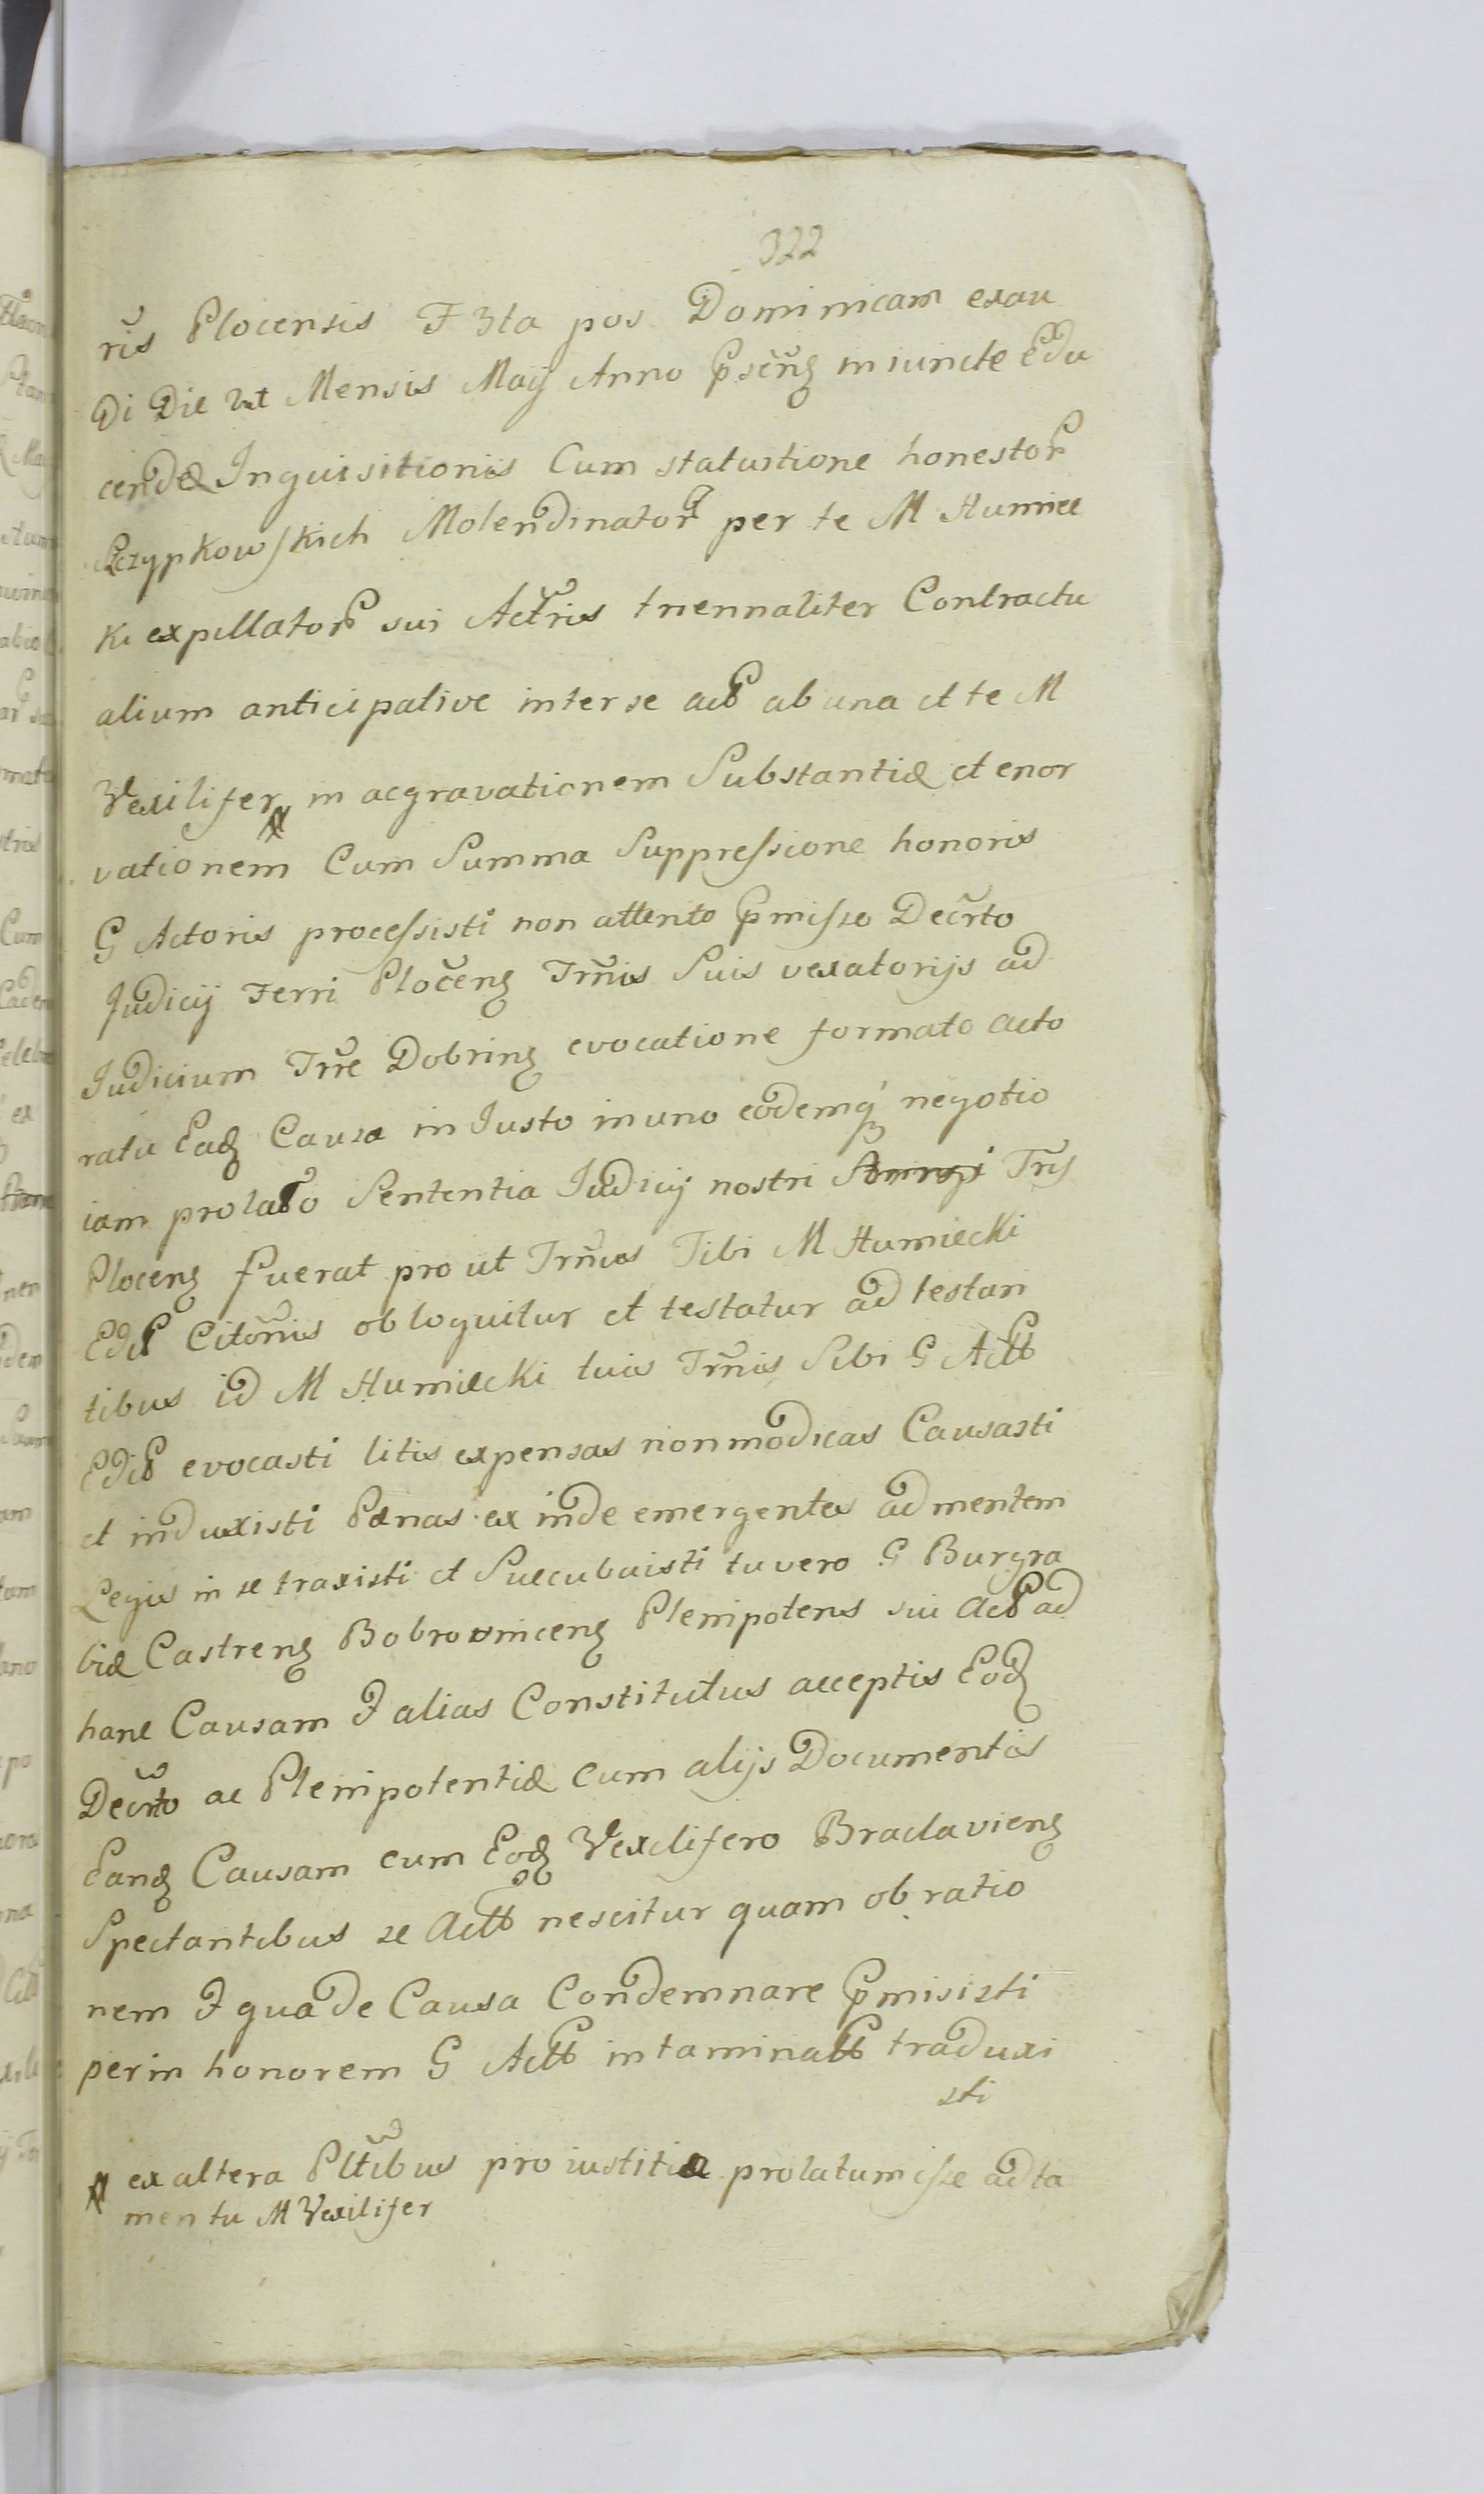 322
ris Plocensis F 3ta pos Dominicam exau
Di Die vt Mensis Maij Anno Psẽng iniuncte Edu
cendæ Inquisitionis Cum statuitione honestor
Rzypkowskich Molendinator per te M Humiec
ki expellator sui Actris triennaliter Contractu
alium anticipative inter se act ab una et te M
Vexilifer in acgravationem Substantiæ et enor
vationem Cum Summa Suppressione honoris
G Actoris processisti non attento Pmisso Decrto
Judicij Terri Plocens Trñis Suis vexatorijs ad
Iudicium Trre Dobrinẽ evocatione formato acto
ratu Ead Causa in Iusto in uno eodemq negotio
iam prolato Sententia Iudicij nostri Tris
Plocens fuerat pro ut Trñus Tibi M Humiecki
Edit Citõnis obloquitur et testatur ad testan
tibus id M Humiecki tuis Trñis Sibi G Actt
Edit evocasti litis expensas non modicas Causasti
et induxisti Pænas ex inde emergentes ad mentem
Legis in se traxisti et Succubuisti tu vero G Burgra
biæ Castrens Bobrownicens Plenipotens sui Act ad
hanc Causam F alias Constitutus acceptis Eod
Decrto ac Plenipotentiæ cum alijs Documentis
Eand Causam cum Eod Vexclifero Braclaviens
Spectantibus se Actt nescitur quam ob ratio
nem F qua de Causa Condemnare Pmisisti
per in honorem G Actt intaminatt traduxi
sti
ex altera Pltĩbus pro iustitia prolatum isse ad ta
men tu M Vexilifer